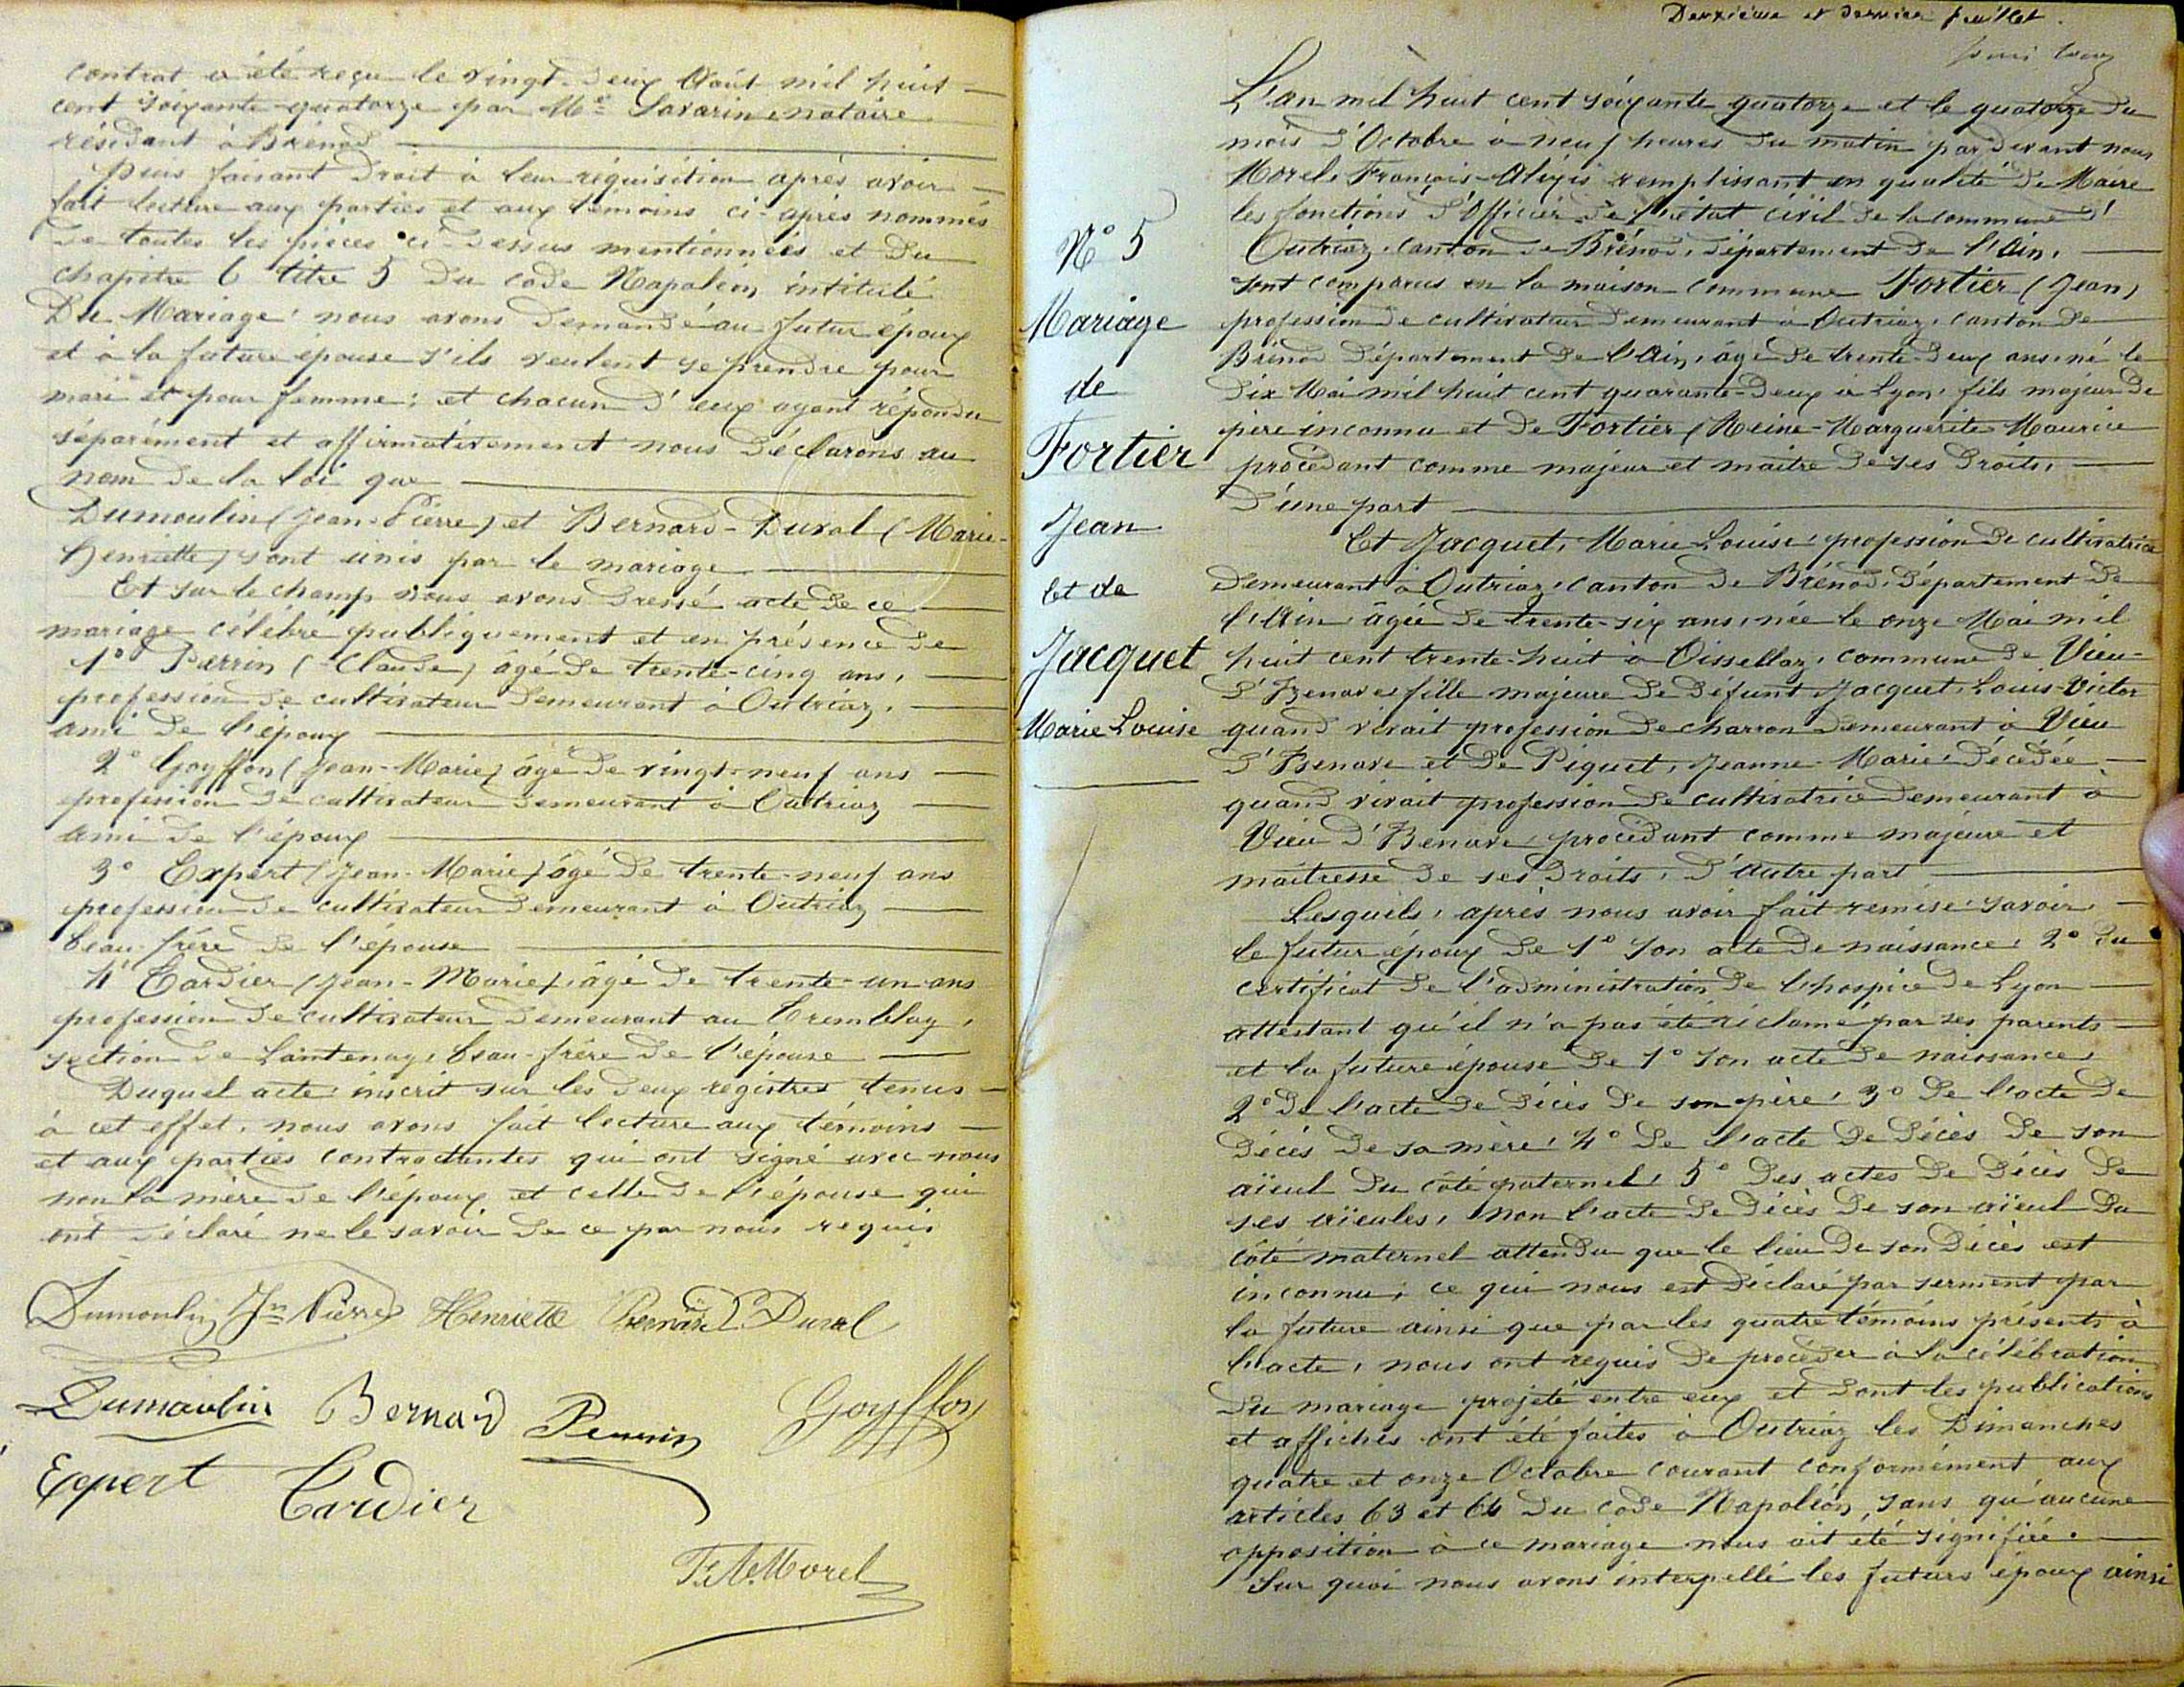 contrat a été reçu le vingt-deux Août mil huit
cent soixante-quatorze par Me Savarin, notaire
résidant à Brénod
Puis faisant droit à leur réquisition après avoir
fait lecture aux parties et aux témoins ci-après nommés
de toutes les pièces ci-dessus mentionnées et du
chapitre 6 titre 5 du code Napoléon, intitulé
Du Mariage, nous avons demandé au futur époux
et à la future épouse s'ils veulent se prendre pour
mari et pour femme; et chacun d'eux ayant répondu
séparément et affirmativement nous déclarons au
nom de la loi que
Dumoulin (Jean-Pierre) et Bernard-Duval (Marie-
Henriette) sont unis par le mariage
Et sur le champ nous avons dressé acte de ce
mariage célébré publiquement et en présence de
1° Perrin (Claude) âgé de trente-cinq ans,
profession de cultivateur demeurant à Outriaz,
ami de l'époux
2° Goyffon (Jean-Marie) âgé de vingt-neuf ans
profession de cultivateur demeurant à Outriaz
ami de l'époux
3° Expert (Jean-Marie) âgé de trente-neuf ans
profession de cultivateur demeurant à Outriaz
beau-frère de l'épouse
4° Tardier (Jean-Marie), âgé de trente-un ans
profession de cultivateur demeurant au Tremblay,
section de Lantenay, beau-frère de l'épouse
Duquel acte, inscrit sur les deux registres tenus
à cet effet, nous avons fait lecture aux témoins
et aux parties contractantes qui ont signé avec nous
non la mère de l'époux et celle de l'épouse qui
ont déclaré ne le savoir de ce par nous requis
Dumoulin Jn Pierre Henriette Bernard Duval
Dumoulin Bernard Perrin Goyffon
Expert Tardier
F. A. Morel
Deuxième et dernier feuillet.
N° 5
Mariage
de
Fortier
Jean
et de
Jacquet
Marie Louise
L'an mil huit cent soixante quatorze et le quatorze du
mois d'Octobre à neuf heures du matin par devant nous
Morel, François-Alexis remplissant en qualité de Maire
les fonctions d'Officier de l'état civil de la commune d'
Outriaz, canton de Brénod, département de l'Ain,
sont comparus en la maison commune Fortier (Jean)
profession de cultivateur demeurant à Outriaz, canton de
Brénod département de l'Ain, âgé de trente-deux ans, né le
dix Mai mil huit cent quarante-deux à Lyon, fils majeur de
père inconnu et de Fortier (Reine-Marguerite-Maurice
procédant comme majeur et maître de ses droits,
d'une part
Et Jacquet, Marie-Louise, profession de cultivatrice
demeurant à Outriaz, canton de Brénod, département de
l'Ain, âgée de trente-six ans, née le onze Mai mil
huit cent trente-huit à Oissellaz, commune de Vieu-
d'Izenave, fille majeure de défunt Jacquet, Louis-Victor
quand vivait profession de charron demeurant à Vieu
d'Izenave et de Piquet, Jeanne-Marie, décédée
quand vivait profession de cultivatrice demeurant à
Vieu d'Izenave, procédant comme majeure et
maîtresse de ses droits, d'autre part
Lesquels, après nous avoir fait remise, savoir,
le futur époux de 1° son acte de naissance, 2° du
certificat de l'administration de l'hospice de Lyon
attestant qu'il n'a pas été réclamé par ses parents
et la future épouse de 1° son acte de naissance,
2° de l'acte de décès de son père, 3° de l'acte de
décès de sa mère, 4° de l'acte de décès de son
aïeul du côté paternel, 5° des actes de décès de
ses aïeules, non l'acte de décès de son aïeul du
côté maternel attendu que le lieu de son décès est
inconnu, ce qui nous est déclaré par serment par
la future ainsi que par les quatre témoins présents à
l'acte, nous ont requis de procéder à la célébration
du mariage projeté entre eux et dont les publications
et affiches ont été faites à Outriaz les Dimanches
quatre et onze Octobre courant conformément aux
articles 63 et 64 du code Napoléon, sans qu'aucune
opposition à ce mariage nous ait été signifiée.
Sur quoi nous avons interpellé les futurs époux ainsi